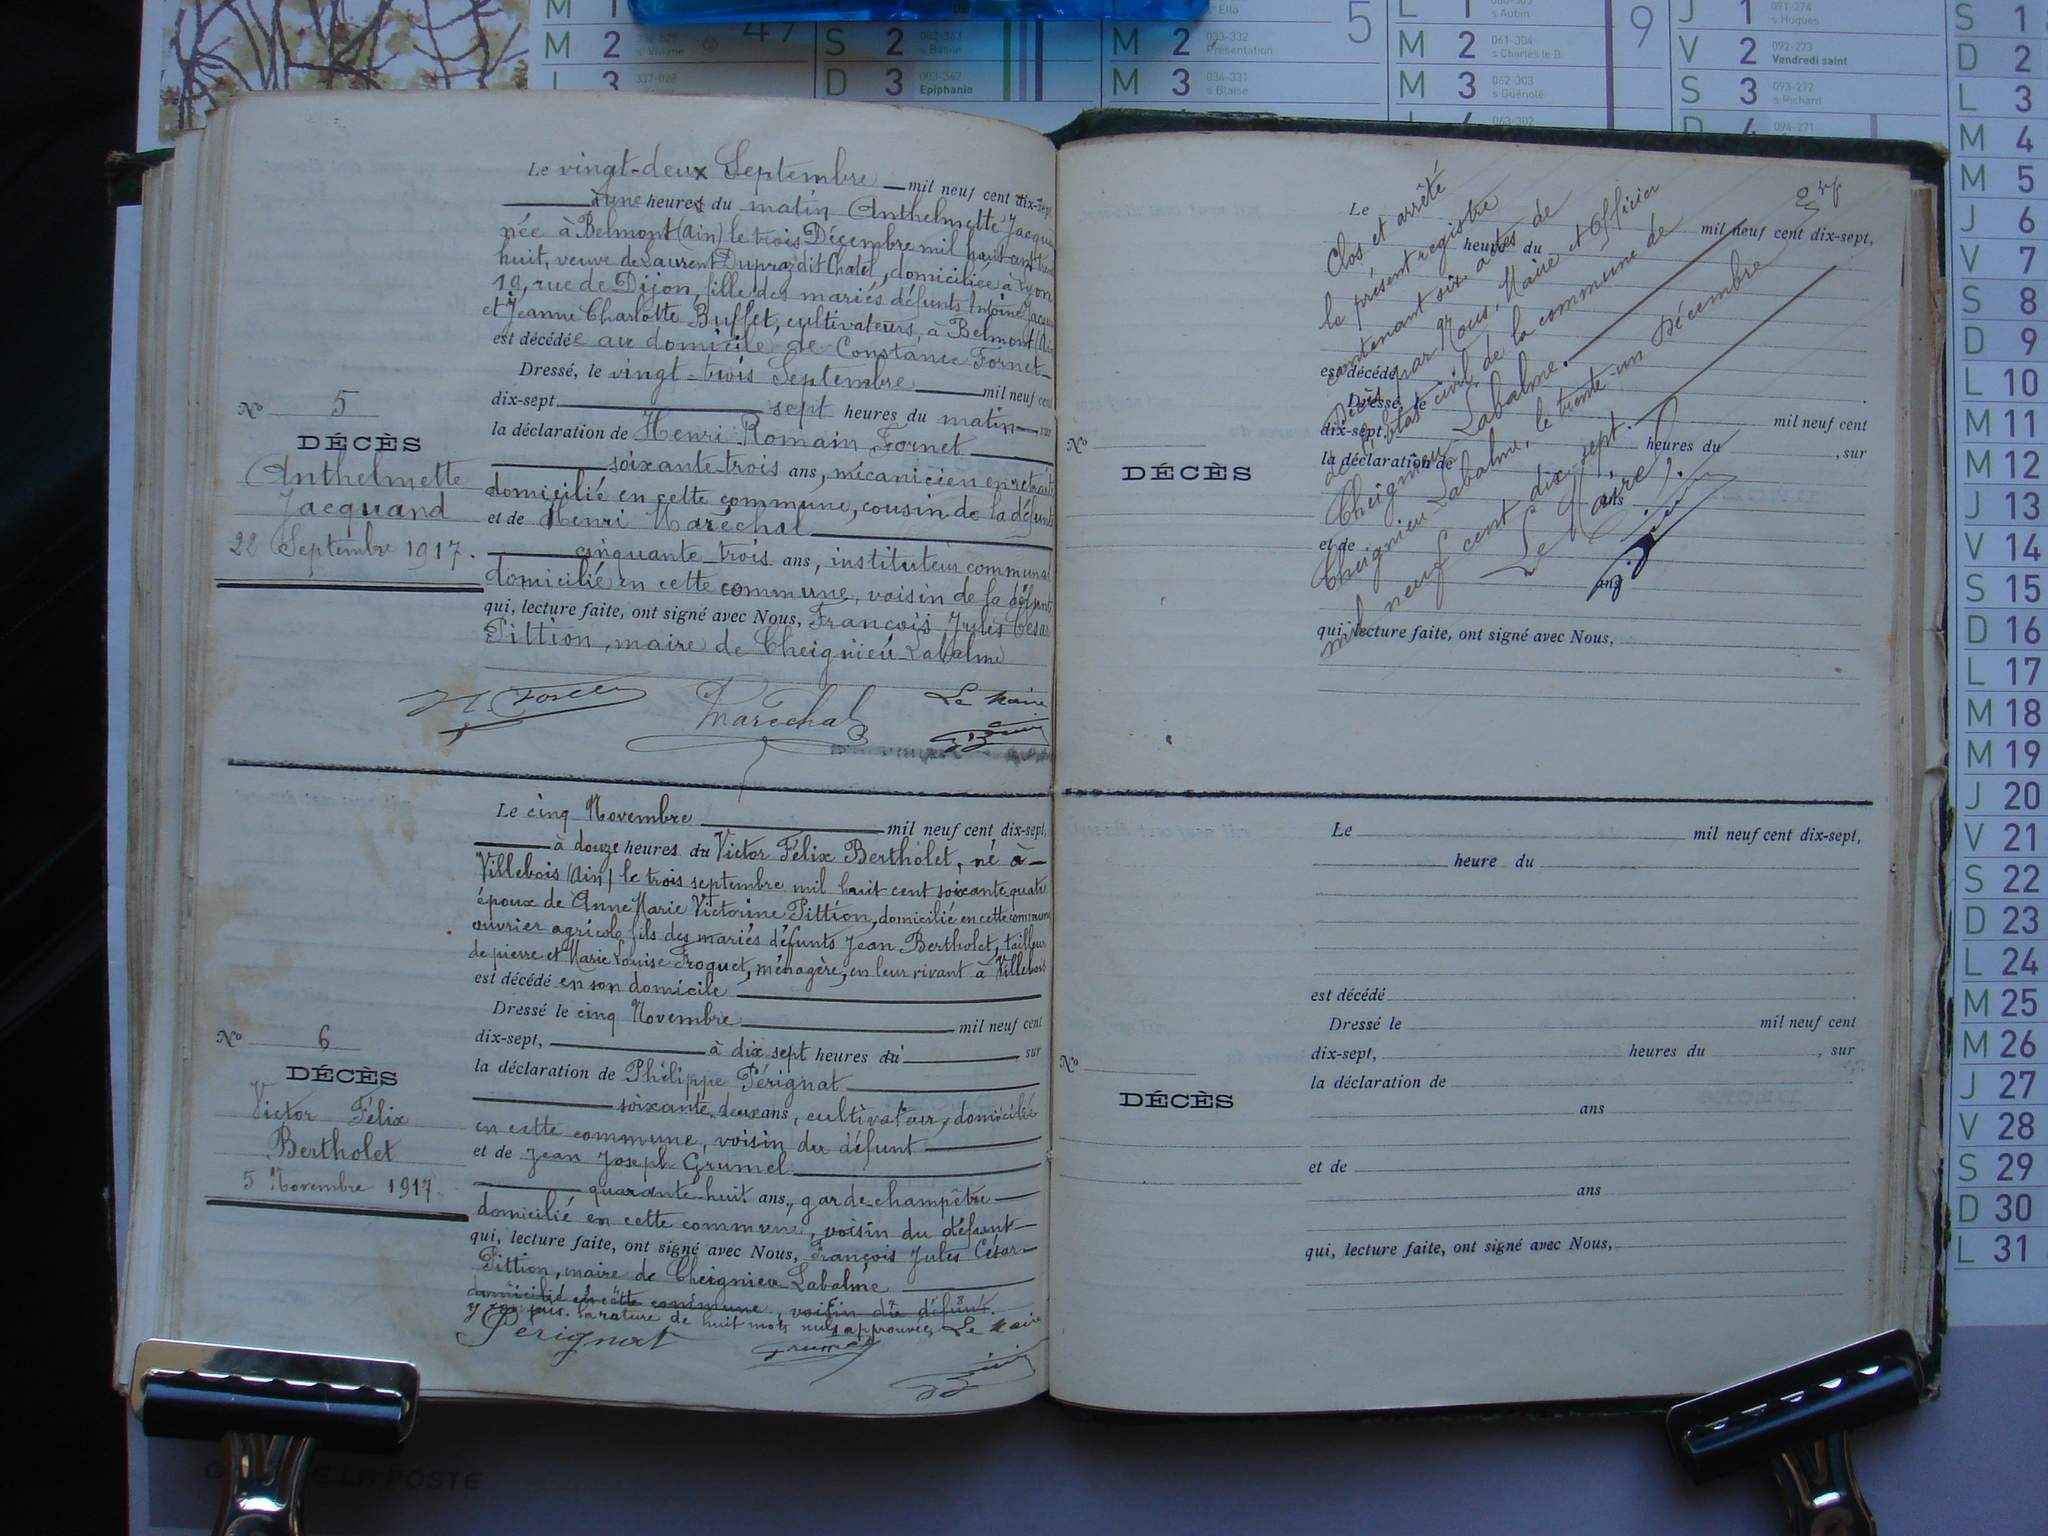 N° 5
DÉCÈS
Anthelmette
Jacquand
22 Septembre 1917.
Le vingt-deux Septembre mil neuf cent dix-sept
à une heures du matin Anthelmette Jacquand
née à Belmont (Ain) le trois Décembre mil huit cent trente
huit, veuve de Laurent Dupraz dit Chatel, domiciliée à Lyon
19, rue de Dijon, fille des mariés défunts Antoine Jacquand
et Jeanne Charlotte Buffet, cultivateurs, à Belmont (Ain)
est décédée au domicile de Constance Fornet
Dressé, le vingt-trois Septembre mil neuf cent
dix-sept sept heures du matin sur
la déclaration de Henri Romain Fornet
soixante-trois ans, mécanicien en retraite
domicilié en cette commune, cousin de la défunte
et de Henri Maréchal
cinquante-trois ans, instituteur communal
domicilié en cette commune, voisin de la défunte
qui, lecture faite, ont signé avec Nous, François Jules César
Pittion, maire de Cheignieu-Labalme
Maréchal
Le Maire
N° 6
DÉCÈS
Victor Félix
Bertholet
5 Novembre 1917.
Le cinq Novembre mil neuf cent dix-sept,
à douze heures du Victor Félix Bertholet, né à
Villebois (Ain) le trois septembre mil huit cent soixante quatre
époux de Anne Marie Victorine Pittion, domicilié en cette commune
ouvrier agricole, fils des mariés défunts Jean Bertholet, tailleur
de pierre et Marie Louise Froquet, ménagère, en leur vivant à Villebois
est décédé en son domicile
Dressé le cinq Novembre mil neuf cent
dix-sept, à dix sept heures du sur
la déclaration de Philippe Pérignat
soixante-deux ans, cultivateur, domicilié
en cette commune, voisin du défunt
et de Jean Joseph Grumel
quarante-huit ans, garde-champêtre
domicilié en cette commune, voisin du défunt
qui, lecture faite, ont signé avec Nous, François Jules César
Pittion, maire de Cheignieu-Labalme
domicilié en cette commune, voisin du défunt.
la rature de huit mots nuls approuvée Le Maire
Perignat
Grumel
Clos et arrêté
le présent registre
contenant six actes de
décès par Nous, Maire et Officier
de l'état civil de la commune de
Cheignieu Labalme.
Cheignieu-Labalme, le trente-un Décembre
mil neuf cent dix-sept.
Le Maire
Le mil neuf cent dix-sept,
heures du
est décédé
Dressé le mil neuf cent
dix-sept, heures du , sur
la déclaration de
ans
et de
ans
qui, lecture faite, ont signé avec Nous,
N°
DÉCÈS
Le mil neuf cent dix-sept,
heure du
est décédé
Dressé le mil neuf cent
dix-sept, heures du , sur
la déclaration de
ans
et de
ans
qui, lecture faite, ont signé avec Nous,
N°
DÉCÈS
M 2
S 2
D 3 Epiphanie
M 2 Présentation
M 3 s Blaise
5
M 2 s Charles le B.
M 3 s Guénolé
9
J 1 s Hugues
V 2 Vendredi saint
S 3 s Richard
S 1
D 2
L 3
M 4
M 5
J 6
V 7
S 8
D 9
L 10
M 11
M 12
J 13
V 14
S 15
D 16
L 17
M 18
M 19
J 20
V 21
S 22
D 23
L 24
M 25
M 26
J 27
V 28
S 29
D 30
L 31
LA POSTE